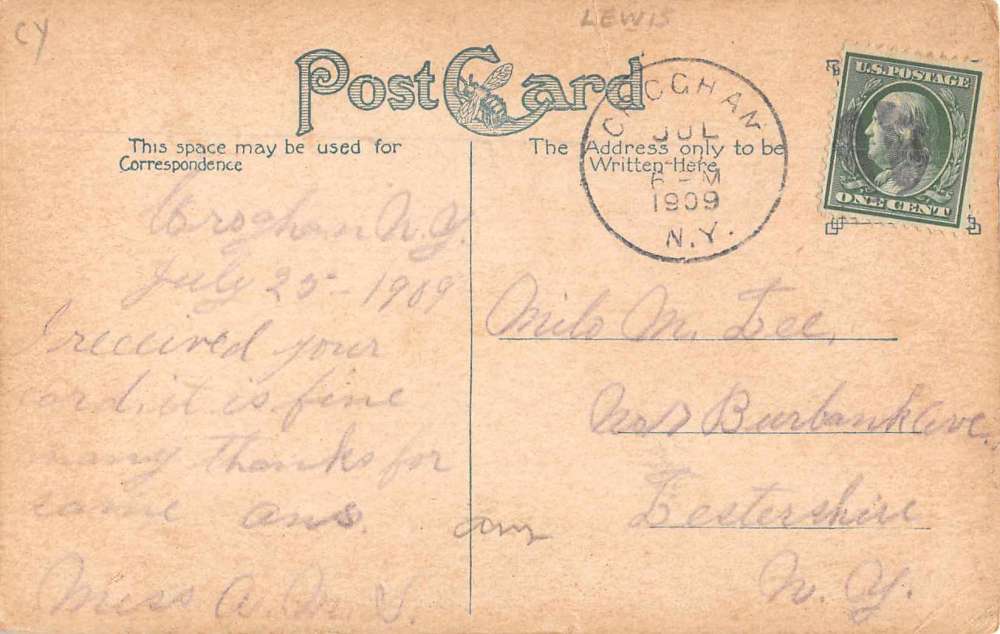 CY
LEWIS
Post Card
U.S. POSTAGE
ONE CENT
CROGHAN
JUL
6 - M
1909
N.Y.
This space may be used for
Correspondence
The Address only to be
Written Here
Croghan N.Y.
July 25 - 1909
I received your
card, it is fine
many thanks for
same ans.
Miss A. M.
Milo M. Lee,
Burbank Ave.
Lestershire
N. Y.